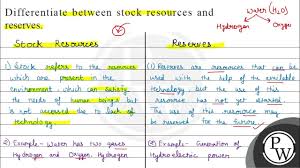 Differentiate between stock resources and
reserves.
Water (H₂O)
Hydrogen Oxygen
Stock Resources
Reserves
1) Stock refers to the resources
which are present in the
environment which can satisfy
the needs of human beings but
is not accessed due to lack of
technology.
1) Reserves are resources that can be
used with the help of the available
technology but the use of this
resource has not yet started.
The use of this resource may
be reserved for the future.
2) Example - Water has two gases
Hydrogen and Oxygen. Hydrogen
2) Example - Generation of
Hydro electric power
P
W